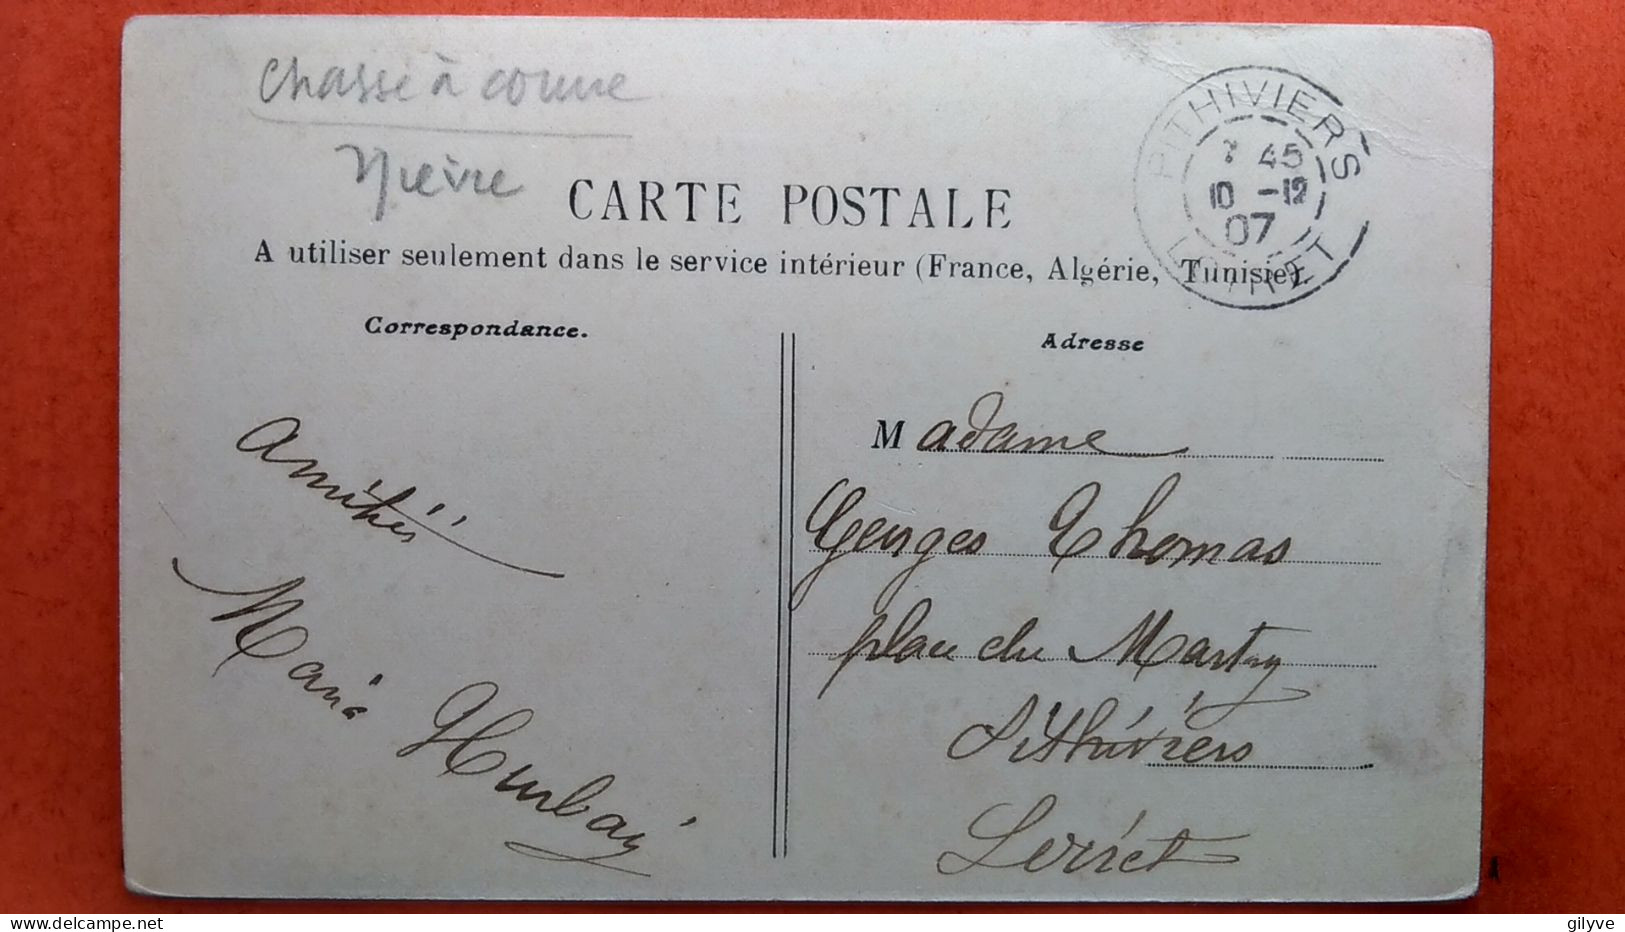 Chasse à courre
Nièvre
CARTE POSTALE
A utiliser seulement dans le service intérieur (France, Algérie, Tunisie).
PITHIVIERS
7 45
10 -12
07
LOIRET
Correspondance.
Adresse
Amitiés
Marie
Madame
Georges Thomas
place du Martroy
Pithiviers
Loiret
gilyve